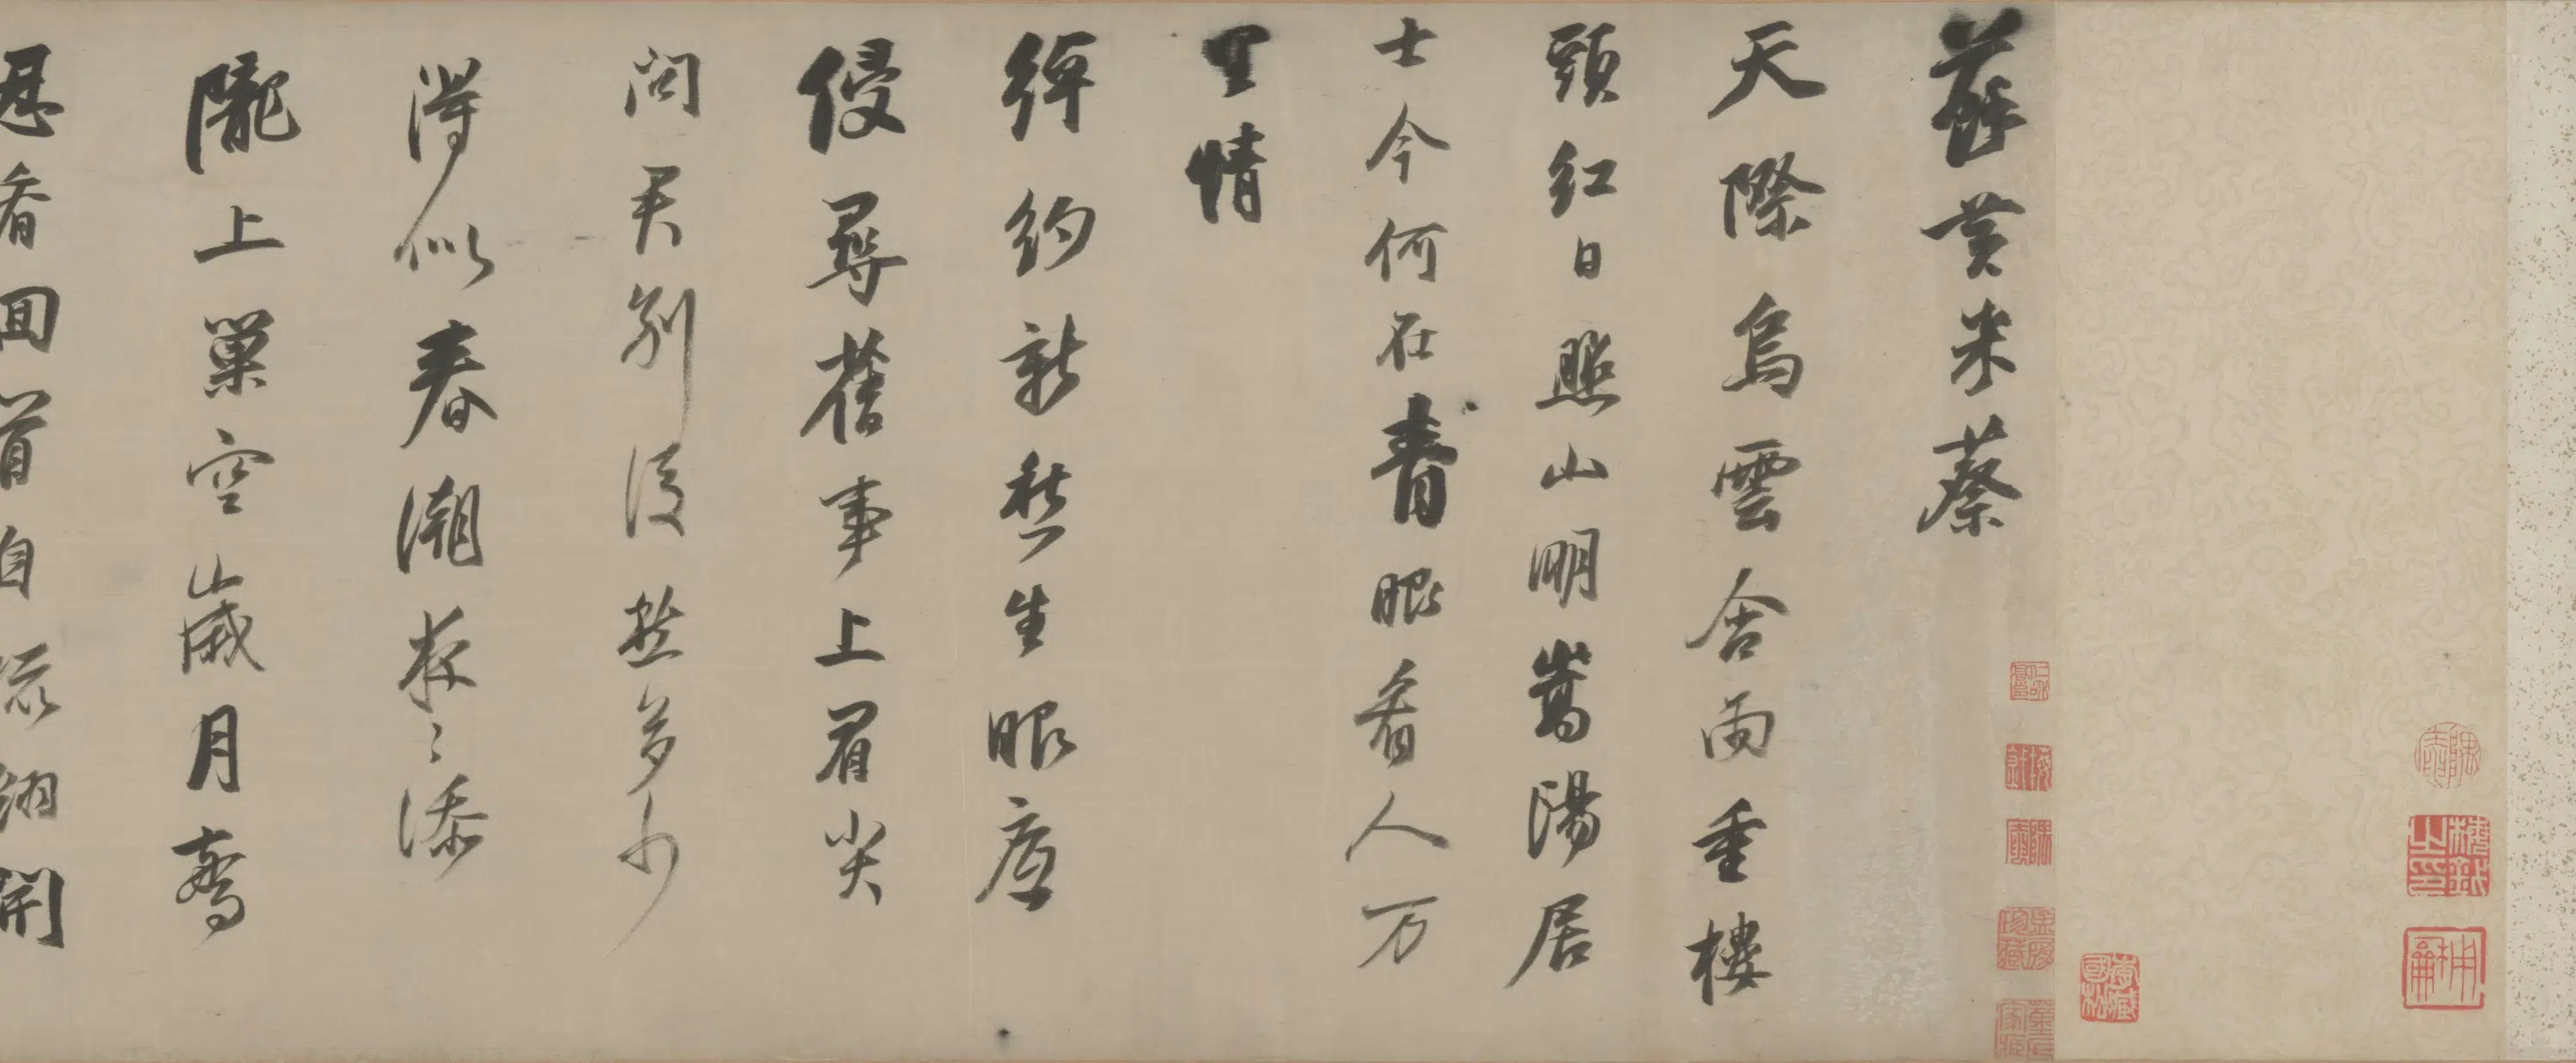 蘇黃米蔡
天際烏雲含雨重樓
頭紅日照山明嵩陽居
士今何在青眼看人万
里情
綽約新愁生眼底
侵尋舊事上眉尖
問君別後愁多少
得似春潮夜〻添
隴上巢空歲月驚
忍看回首自梳翎開